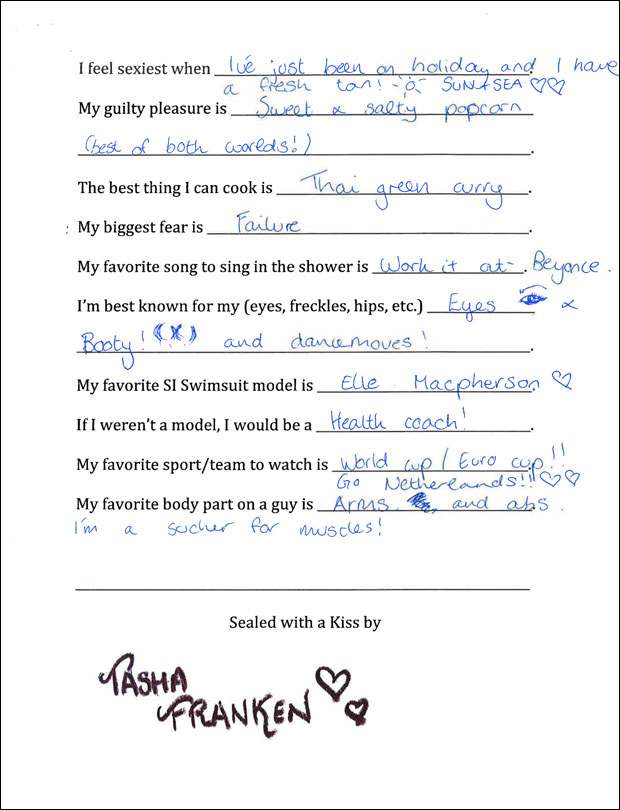 I feel sexiest when I've just been on holiday and I have
a fresh tan! SUN & SEA ♡♡
My guilty pleasure is Sweet & salty popcorn
(best of both worlds!).
The best thing I can cook is Thai green curry.
My biggest fear is Failure.
My favorite song to sing in the shower is Work it at. Beyonce.
I'm best known for my (eyes, freckles, hips, etc.) Eyes &
Booty! and dancemoves!.
My favorite SI Swimsuit model is Elle Macpherson ♡
If I weren't a model, I would be a Health coach!.
My favorite sport/team to watch is World cup / Euro cup!!
Go Netherlands!! ♡♡
My favorite body part on a guy is Arms and abs.
I'm a sucker for muscles!
Sealed with a Kiss by
TASHA ♡
FRANKEN ♡